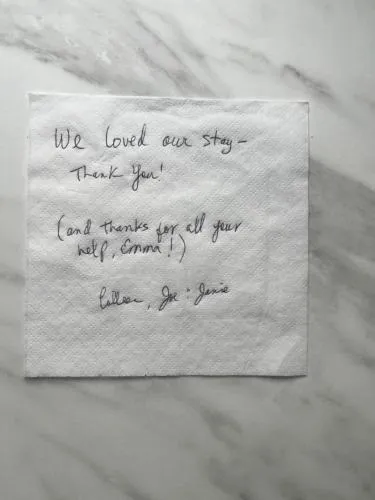 We loved our stay-
Thank You!
(and thanks for all your
help, Emma!)
Colleen, Joe : Janie